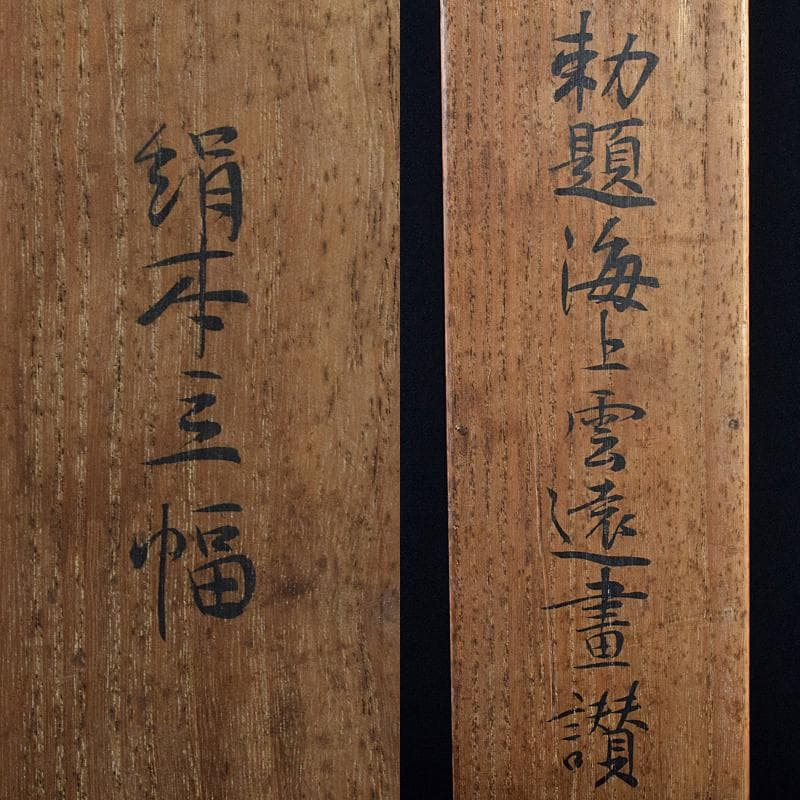 絹本立幅
勅題海上雲遠畫讃